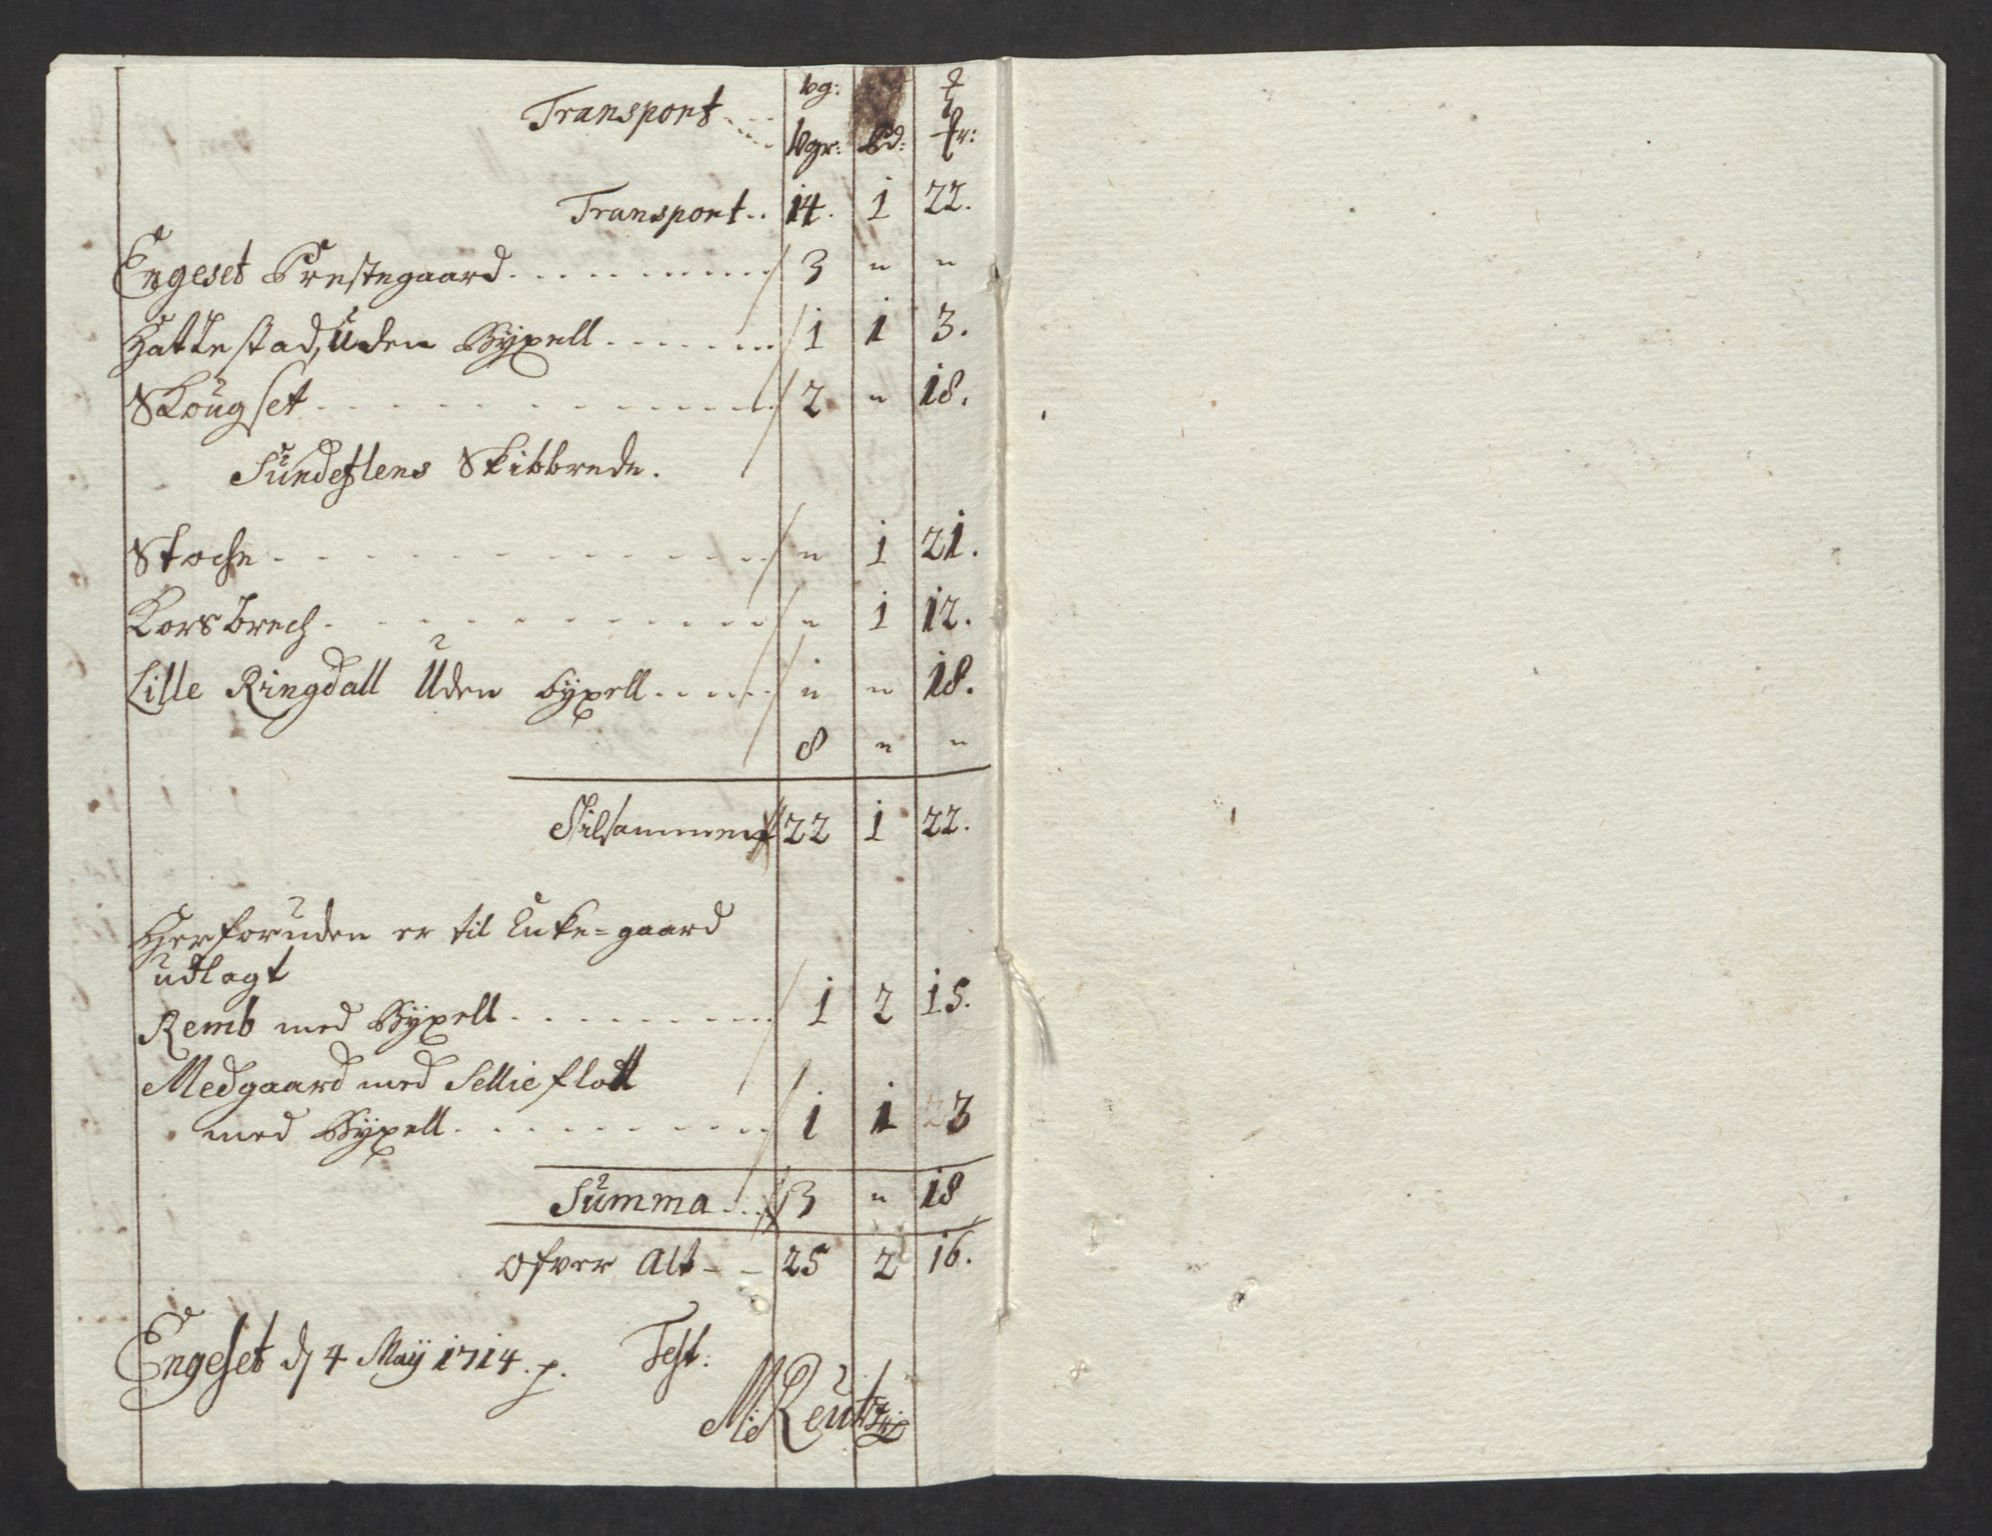 Transport
vg:
Wgr: Pd: fr:
Transport.. 14. 1 22.
Engeset Prestegaard. / 3 " "
Hattestad, Uden Bÿxell / 1 1 3.
Skougset / 2 " 18.
Sundeslens Skibbrede.
Stoche / " 1 21.
Korsbrech / " 1 12.
Lille Ringdall Uden bÿxell / " " 18.
8 " "
Tilsammen 22 1 22.
Herforuden er til Enke=gaard
udlagt
Remb med Bÿxell / 1 2 15.
Medgaard med Sellieflott
med Bÿxell / 1 1 23
Summa 3 " 18
Ofver Alt - - 25 2 16.
Engeset d 4 Maÿ 1714. p. Test: